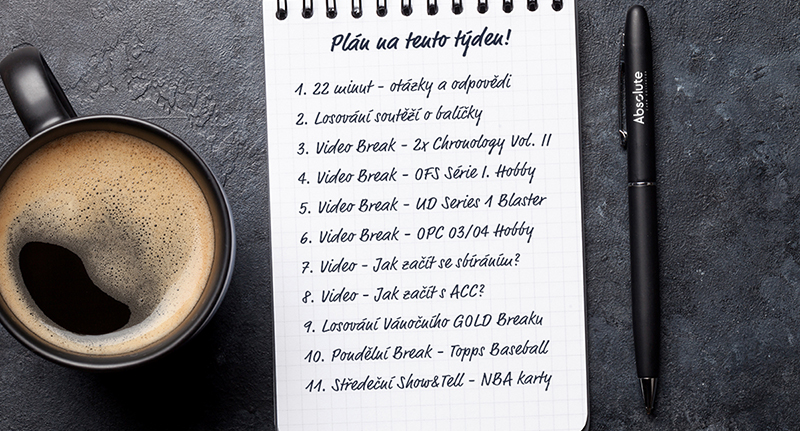 Plán na tento týden!
1. 22 minut - otázky a odpovědi
2. Losování soutěží o balíčky
3. Video Break - 2x Chronology Vol. II
4. Video Break - OFS Série I. Hobby
5. Video Break - UD Series 1 Blaster
6. Video Break - OPC 03/04 Hobby
7. Video - Jak začít se sbíráním?
8. Video - Jak začít s ACC?
9. Losování Vánočního GOLD Breaku
10. Pondělní Break - Topps Baseball
11. Středeční Show&Tell - NBA karty
Absolute